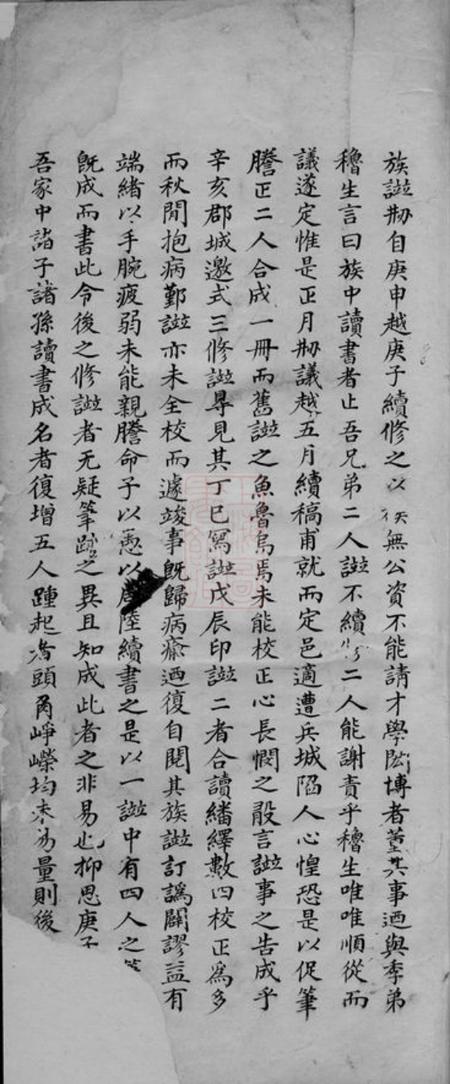 族譜刱自庚申越庚子續修之以後無公資不能請才學閎博者董其事迺與季弟
穞生言曰族中讀書者止吾兄弟二人譜不續修二人能謝責乎穞生唯唯順從而
議遂定惟是正月刱議越五月續稿甫就而定邑適遭兵城陷人心惶恐是以促筆
謄正二人合成一冊而舊譜之魚魯烏焉未能校正心長憫之設言譜事之告成乎
辛亥郡城邀式三修譜㝷見其丁巳寫譜戊辰印譜二者合讀繙繹數四校正為多
而秋閒抱病鄞譜亦未全校而遽竣事既歸病瘉迺復自閱其族譜訂譌闢謬益有
端緒以手腕疲弱未能親謄命子以愚以 陸續書之是以一譜中有四人之筆
既成而書此令後之修譜者无疑筆蹟之異且知成此者之非易也抑思庚子
吾家中諸子諸孫讀書成名者復增五人踵起者頭角崢嶸均未易量則後